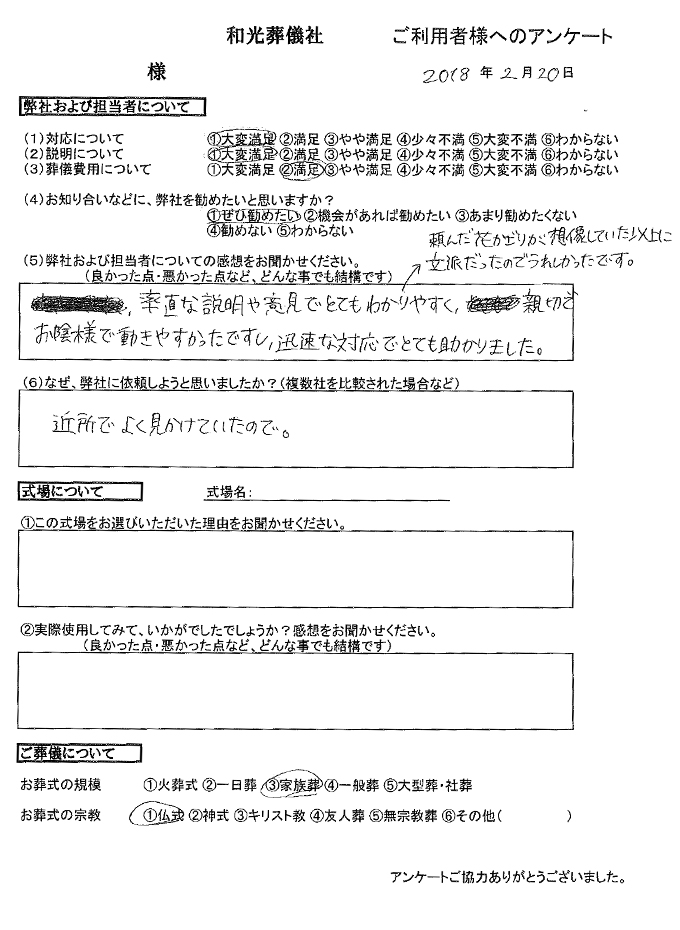 和光葬儀社 ご利用者様へのアンケート
様 2018 年 2 月 20 日
弊社および担当者について
(1)対応について ①大変満足 ②満足 ③やや満足 ④少々不満 ⑤大変不満 ⑥わからない
(2)説明について ①大変満足 ②満足 ③やや満足 ④少々不満 ⑤大変不満 ⑥わからない
(3)葬儀費用について ①大変満足 ②満足 ③やや満足 ④少々不満 ⑤大変不満 ⑥わからない
(4)お知り合いなどに、弊社を勧めたいと思いますか?
①ぜひ勧めたい ②機会があれば勧めたい ③あまり勧めたくない
④勧めない ⑤わからない
頼んだ花かざりが想像していた以上に
立派だったのでうれしかったです。
(5)弊社および担当者についての感想をお聞かせください。
(良かった点・悪かった点など、どんな事でも結構です)
率直な説明や意見でとてもわかりやすく、親切さ
お陰様で動きやすかったですし、迅速な対応でとても助かりました。
(6)なぜ、弊社に依頼しようと思いましたか?(複数社を比較された場合など)
近所でよく見かけていたので。
式場について 式場名:
①この式場をお選びいただいた理由をお聞かせください。
②実際使用してみて、いかがでしたでしょうか?感想をお聞かせください。
(良かった点・悪かった点など、どんな事でも結構です)
ご葬儀について
お葬式の規模 ①火葬式 ②一日葬 ③家族葬 ④一般葬 ⑤大型葬・社葬
お葬式の宗教 ①仏式 ②神式 ③キリスト教 ④友人葬 ⑤無宗教葬 ⑥その他( )
アンケートご協力ありがとうございました。